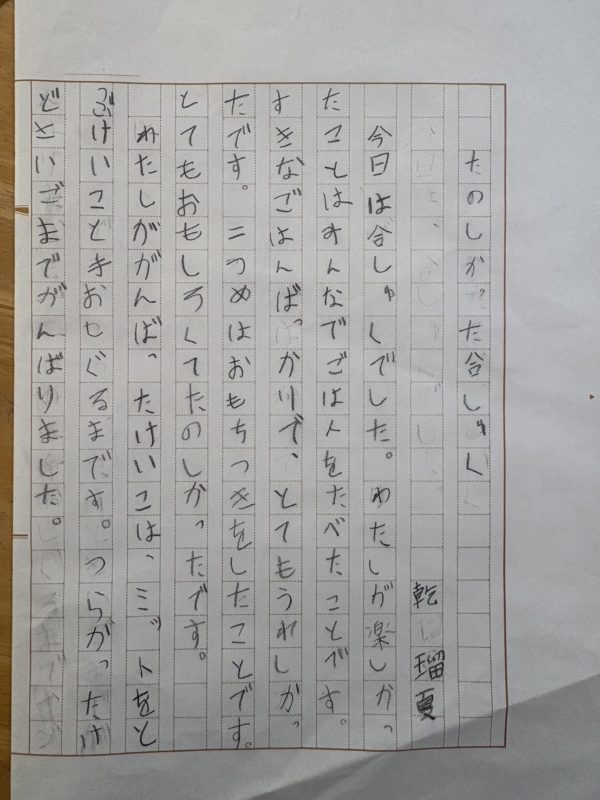 たのしかった合しゅく
乾瑠夏
今日は合しゅくでした。わたしが楽しかっ
たことはみんなでごはんをたべたことです。
すきなごはんばっかりで、とてもうれしかっ
たです。二つめはおもちつきをしたことです。
とてもおもしろくてたのしかったです。
わたしががんばったけいこは、ミットをと
ぶけいこと手おしぐるまです。つらがったけ
どさいごまでがんばりました。